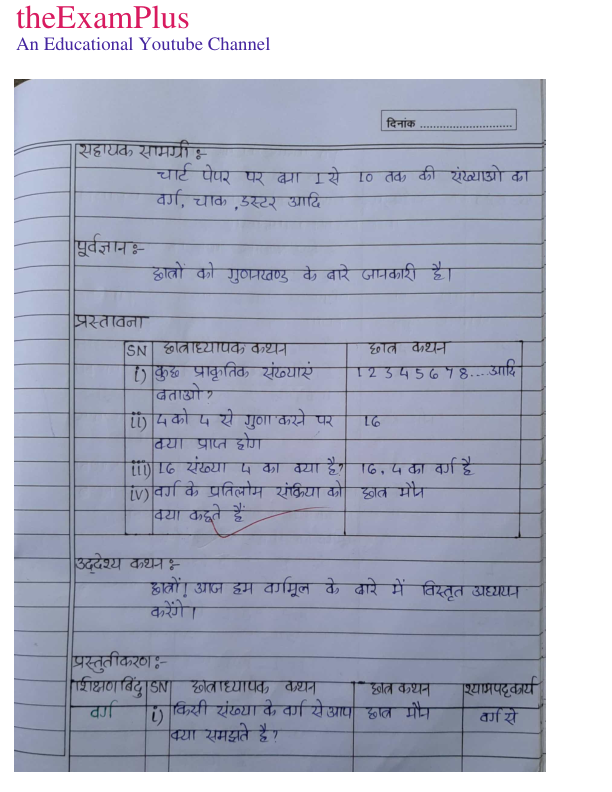 theExamPlus
An Educational Youtube Channel
दिनांक ............................
सहायक सामग्री :-
चार्ट पेपर पर बना 1 से 10 तक की संख्याओ का
वर्ग, चाक , डस्टर आदि
पूर्वज्ञान :-
छात्रों को गुणनखण्ड के बारे जानकारी है।
प्रस्तावना
SN छात्राध्यापक कथन छात्र कथन
i) कुछ प्राकृतिक संख्याएं 1 2 3 4 5 6 7 8....आदि
बताओ ?
ii) 4 को 4 से गुणा करने पर 16
क्या प्राप्त होग
iii) 16 संख्या 4 का क्या है? 16, 4 का वर्ग है
iv) वर्ग के प्रतिलोम संक्रिया को छात्र मौन
क्या कहते हैं
उद्देश्य कथन :-
छात्रों! आज हम वर्गमूल के बारे में विस्तृत अध्ययन
करेंगे।
प्रस्तुतीकरण :-
शिक्षण बिंदु SN छात्राध्यापक कथन छात्र कथन श्यामपट्टकार्य
वर्ग i) किसी संख्या के वर्ग से आप छात्र मौन वर्ग से
क्या समझते है ?